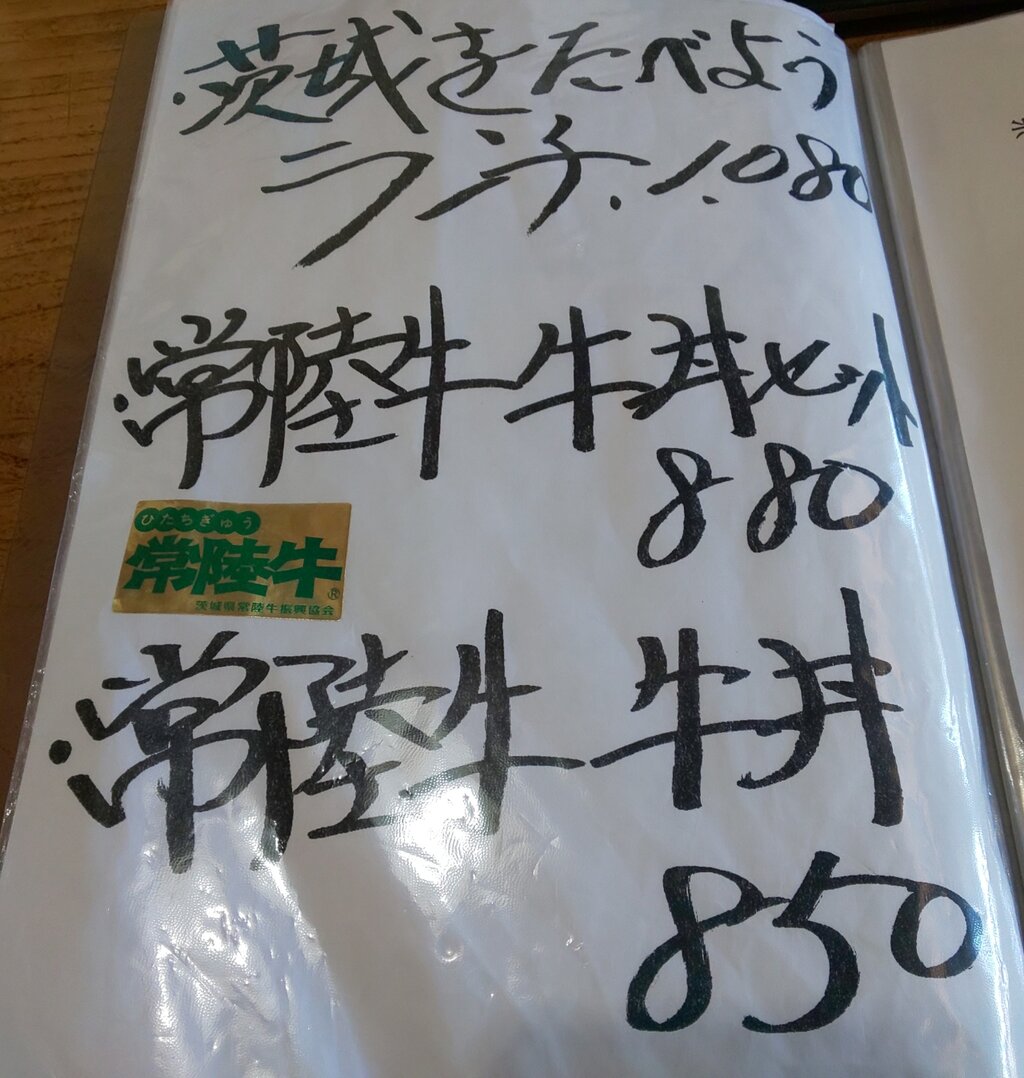 ・茨城をたべよう
ランチ.1.080
・常陸牛 牛丼セット
880
ひたちぎゅう
常陸牛®
茨城県常陸牛振興協会
・常陸牛 牛丼
850